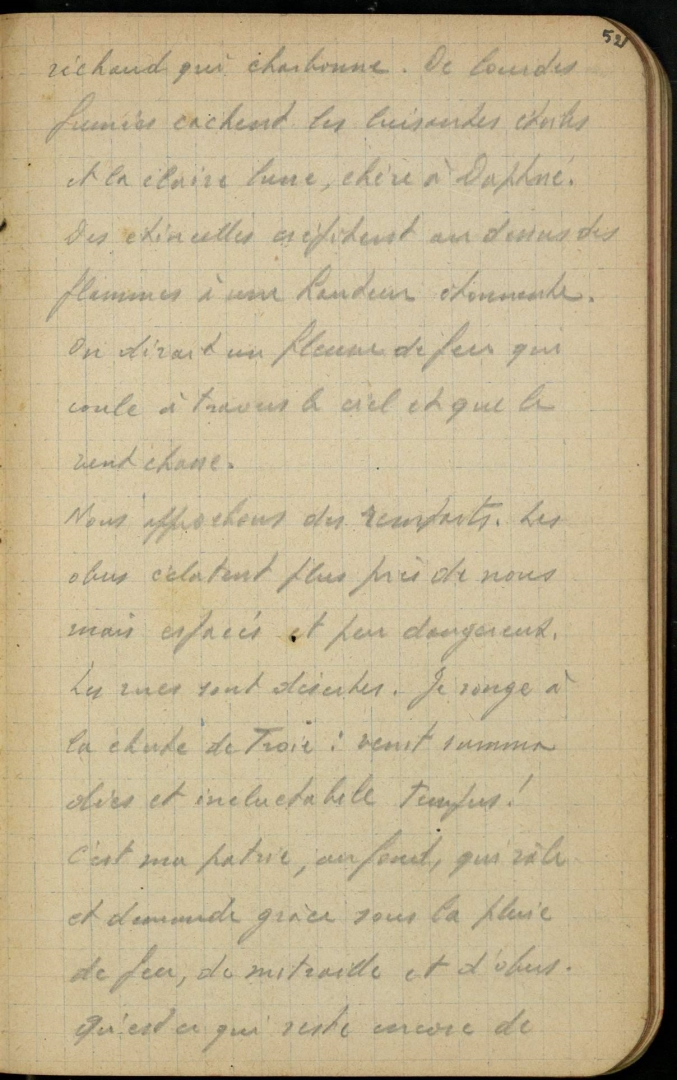 52
réchaud qui charbonne. De lourdes
fumées cachent les luisantes étoiles
et la claire lune, chère à Daphné.
Des étincelles crépitent au dessus des
flammes à une hauteur étonnante.
On dirait un fleuve de feu qui
coule à travers le ciel et que le
vent chasse.
Nous approchons des remparts. Les
obus éclatent plus près de nous
mais espacés et peu dangereux.
Les rues sont désertes. Je songe à
la chute de Troie : venit summa
dies et ineluctabile tempus!
C'est ma patrie, au fond, qui râle
et demande grâce sous la pluie
de feu, de mitraille et d'obus.
Qu'est ce qui reste encore de